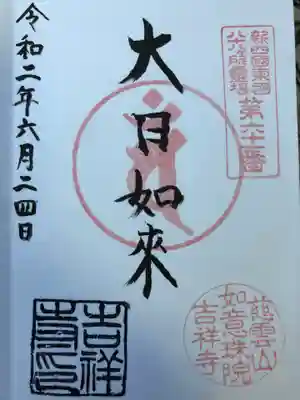 新四國東国
八十八ヶ所霊場
第六十番
大日如來
令和二年六月二四日
慈雲山
如意珠院
吉祥寺
吉祥
寺印